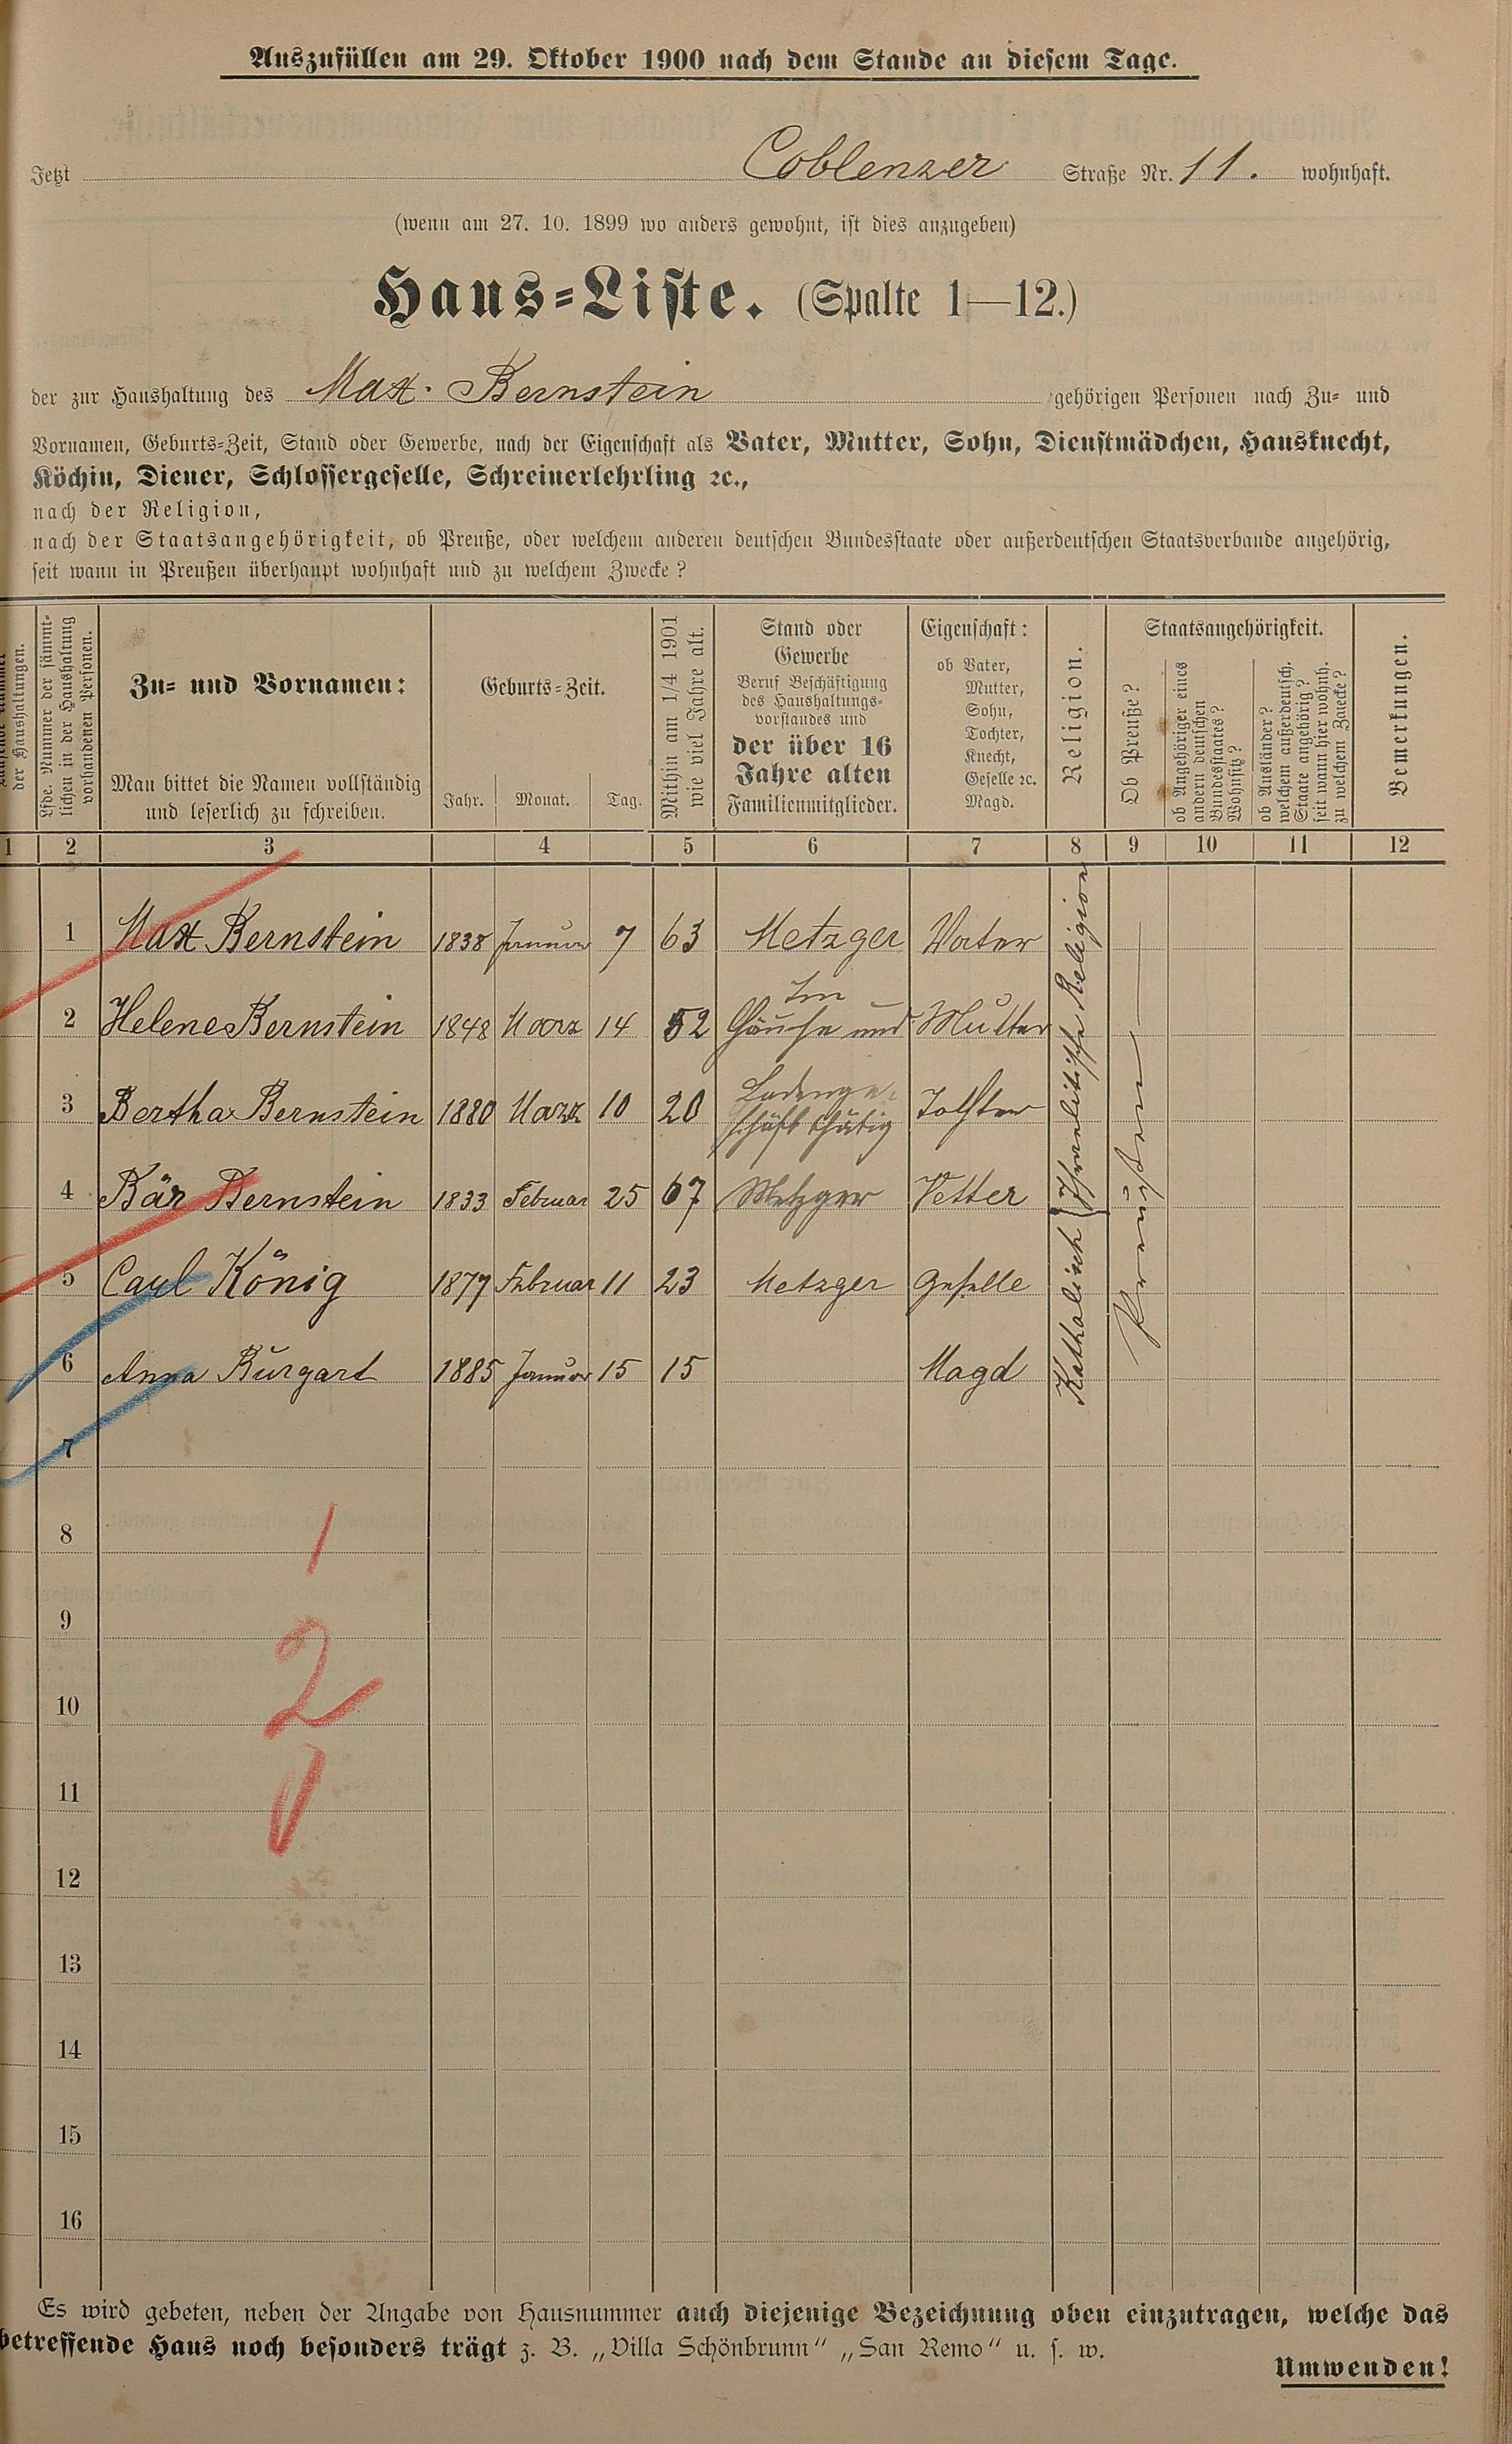 Auszufüllen am 29. Oktober 1900 nach dem Stande an diesem Tage.
Jetzt Coblenzer Straße Nr. 11. wohnhaft.
(wenn am 27. 10. 1899 wo anders gewohnt, ist dies anzugeben)
Haus-Liste. (Spalte 1—12.)
der zur Haushaltung des Max Bernstein gehörigen Personen nach Zu- und
Vornamen, Geburts-Zeit, Stand oder Gewerbe, nach der Eigenschaft als Vater, Mutter, Sohn, Dienstmädchen, Hausknecht,
Köchin, Diener, Schlossergeselle, Schreinerlehrling ꝛc.,
nach der Religion,
nach der Staatsangehörigkeit, ob Preuße, oder welchem anderen deutschen Bundesstaate oder außerdeutschen Staatsverbande angehörig,
seit wann in Preußen überhaupt wohnhaft und zu welchem Zwecke?
der Haushaltungen.
Lfde. Nummer der sämmt-
lichen in der Haushaltung
vorhandenen Personen.
Zu- und Vornamen:
Man bittet die Namen vollständig
und leserlich zu schreiben.
Geburts-Zeit.
Jahr. Monat. Tag.
Mithin am 1/4 1901
wie viel Jahre alt.
Stand oder
Gewerbe
Beruf Beschäftigung
des Haushaltungs-
vorstandes und
der über 16
Jahre alten
Familienmitglieder.
Eigenschaft:
ob Vater,
Mutter,
Sohn,
Tochter,
Knecht,
Geselle ꝛc.
Magd.
Religion.
Staatsangehörigkeit.
Ob Preuße?
ob Angehöriger eines
andern deutschen
Bundesstaates?
Wohnsitz?
ob Ausländer?
welchem außerdeutsch.
Staate angehörig?
seit wann hier wohnh.
zu welchem Zwecke?
Bemerkungen.
1 2 3 4 5 6 7 8 9 10 11 12
1 Max Bernstein 1838 Januar 7 63 Metzger Vater
2 Helene Bernstein 1848 März 14 52 Im Hause und Mutter
3 Bertha Bernstein 1880 März 10 20 Ladenge- schäft thätig Tochter
4 Bär Bernstein 1833 Februar 25 67 Metzger Vetter
5 Carl König 1877 Februar 11 23 Metzger Geselle
6 Anna Burgart 1885 Januar 15 15 Magd
Israelitische Religion
Katholisch
Preußen
7
8
9
10
11
12
13
14
15
16
1
2
Es wird gebeten, neben der Angabe von Hausnummer auch diejenige Bezeichnung oben einzutragen, welche das
betreffende Haus noch besonders trägt z. B. „Villa Schönbrunn“ „San Remo“ u. s. w.
Umwenden!